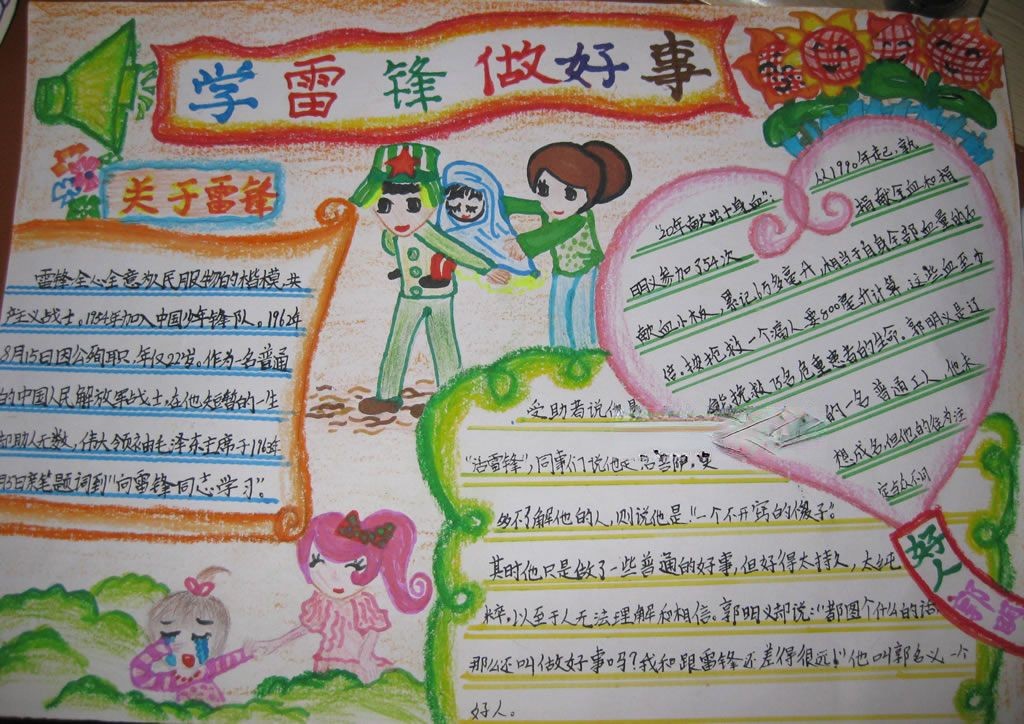 学雷锋做好事
关于雷锋
雷锋全心全意为人民服务的楷模,共
产主义战士。1954年加入中国少年先锋队。1962年
8月15日因公殉职,年仅22岁。作为一名普通
的中国人民解放军战士,在他短暂的一生
却助人无数,伟大领袖毛泽东主席于1963年
月5日亲笔题词到“向雷锋同志学习”。
从1990年起,郭
“20年献出十身血”:
捐献全血和捐
明义参加了54次
献血小板,累记6万多毫升,相当于自身全部血量的
倍。按抢救一个病人要800毫升计算,这些血至少
能挽救75名危重患者的生命。郭明义是辽
的一名普通工人,他未
想成名,但他的
受助者说他是
“活雷锋”,同事们说他
多不了解他的人,则说他是“一个不开窍的傻子”。
其时他只是做了一些普通的好事,但好得太持久,太纯
粹。以至于人无法理解和相信。郭明义却说:“都图个什么的话
那么还叫做好事吗?我和跟雷锋还差得很远!”他叫郭名义一个
好人。
好人